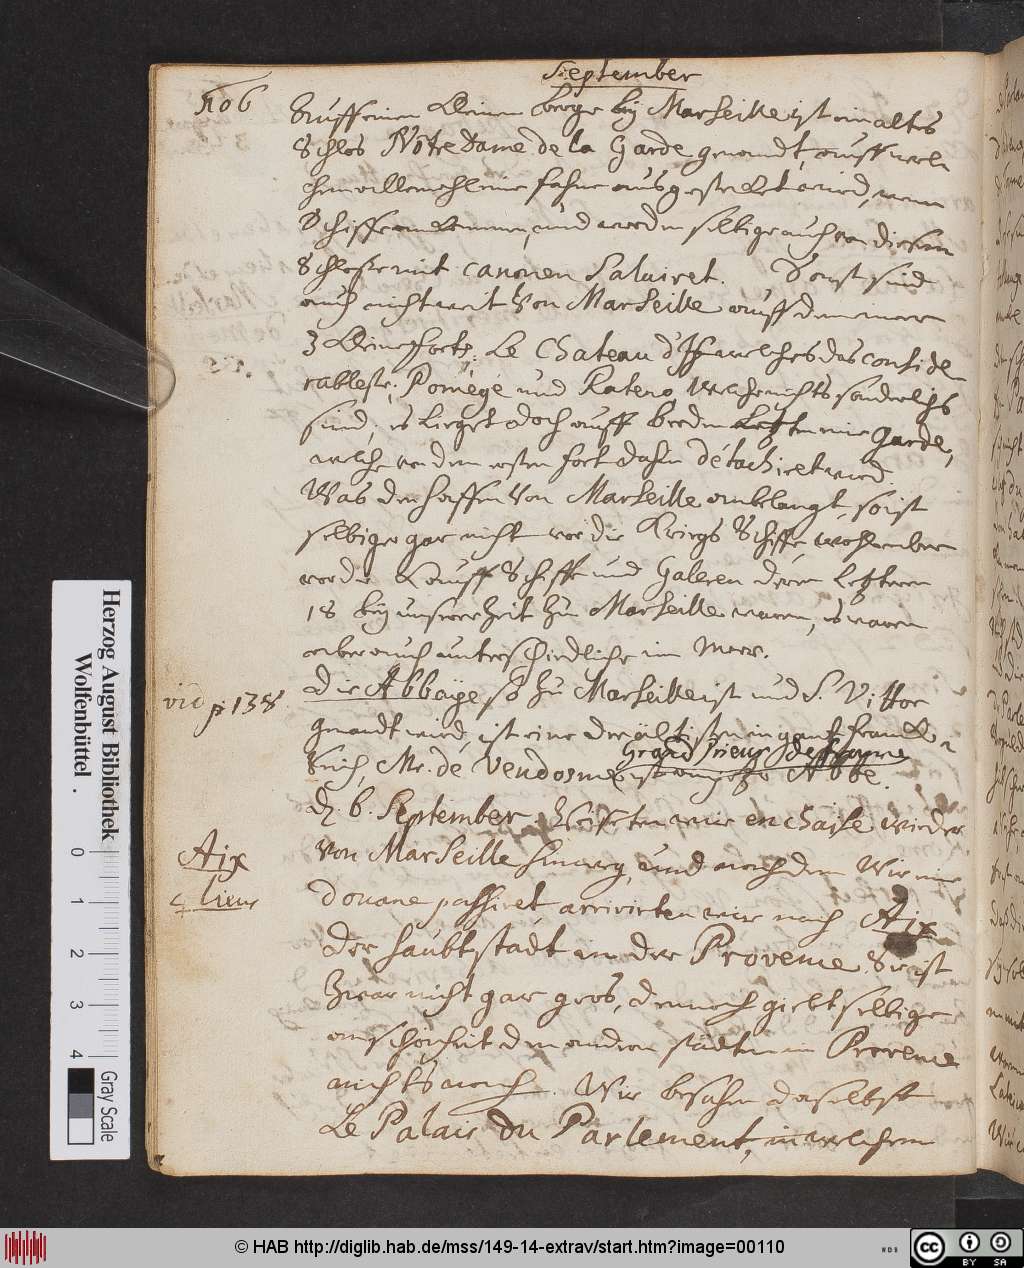 September
106
Auff einen kleinen berge bey Marseille ist ein altes
Schlos Notre Dame de la Garde genandt, auff welchen
allemahl eine fahne ausgestecket wird, wenn
Schiffe ankommen, und werden selbige auch von diesem
Schlosse mit canonen Saluiret. Sonst sind
auch nicht weit von Marseille auff dem meer
3 kleine Forts: Le Chateau d'If welches das conside
rableste, Pomege und Ratenо, welche nichts sonderliches
sind, es lieget doch auff beeden Letzten eine Garde,
welche von dem ersten fort dahin détachiret wird.
Was den haffen von Marseille anbelangt, so ist
selbiger gar nicht vor die Kriegs Schiffe, wohl aber
vor die Kauff Schiffe und Galeren deren Letztern
18 bey unserer Zeit zu Marseille waren, es waren
aber auch unterschiedliche im Meer.
vid p 138
Die Abbaye so zu Marseille ist und S. Victor
genandt wird, ist eine der ältisten in gantz Franck
Grand Prieur de France
reich, Mr. de Vendosme ist anjetzo Abbé.
d. 6. September reiseten wir en chaise wieder
Aix
4 lieus
von Marseille hinweg, und nachdem wir eine
douane passiret, arrivirten wir nach Aix
der haubtstadt in der Provence. Sie ist
zwar nicht gar gros, dennoch giebt selbige
an schönheit den andern städten in Provence
nichts nach. Wir besahen daselbst
Le Palais du Parlement, in welchem
Herzog August Bibliothek
Wolfenbüttel
0 1 2 3 4
Gray Scale
© HAB http://diglib.hab.de/mss/149-14-extrav/start.htm?image=00110
WDB
cc BY SA